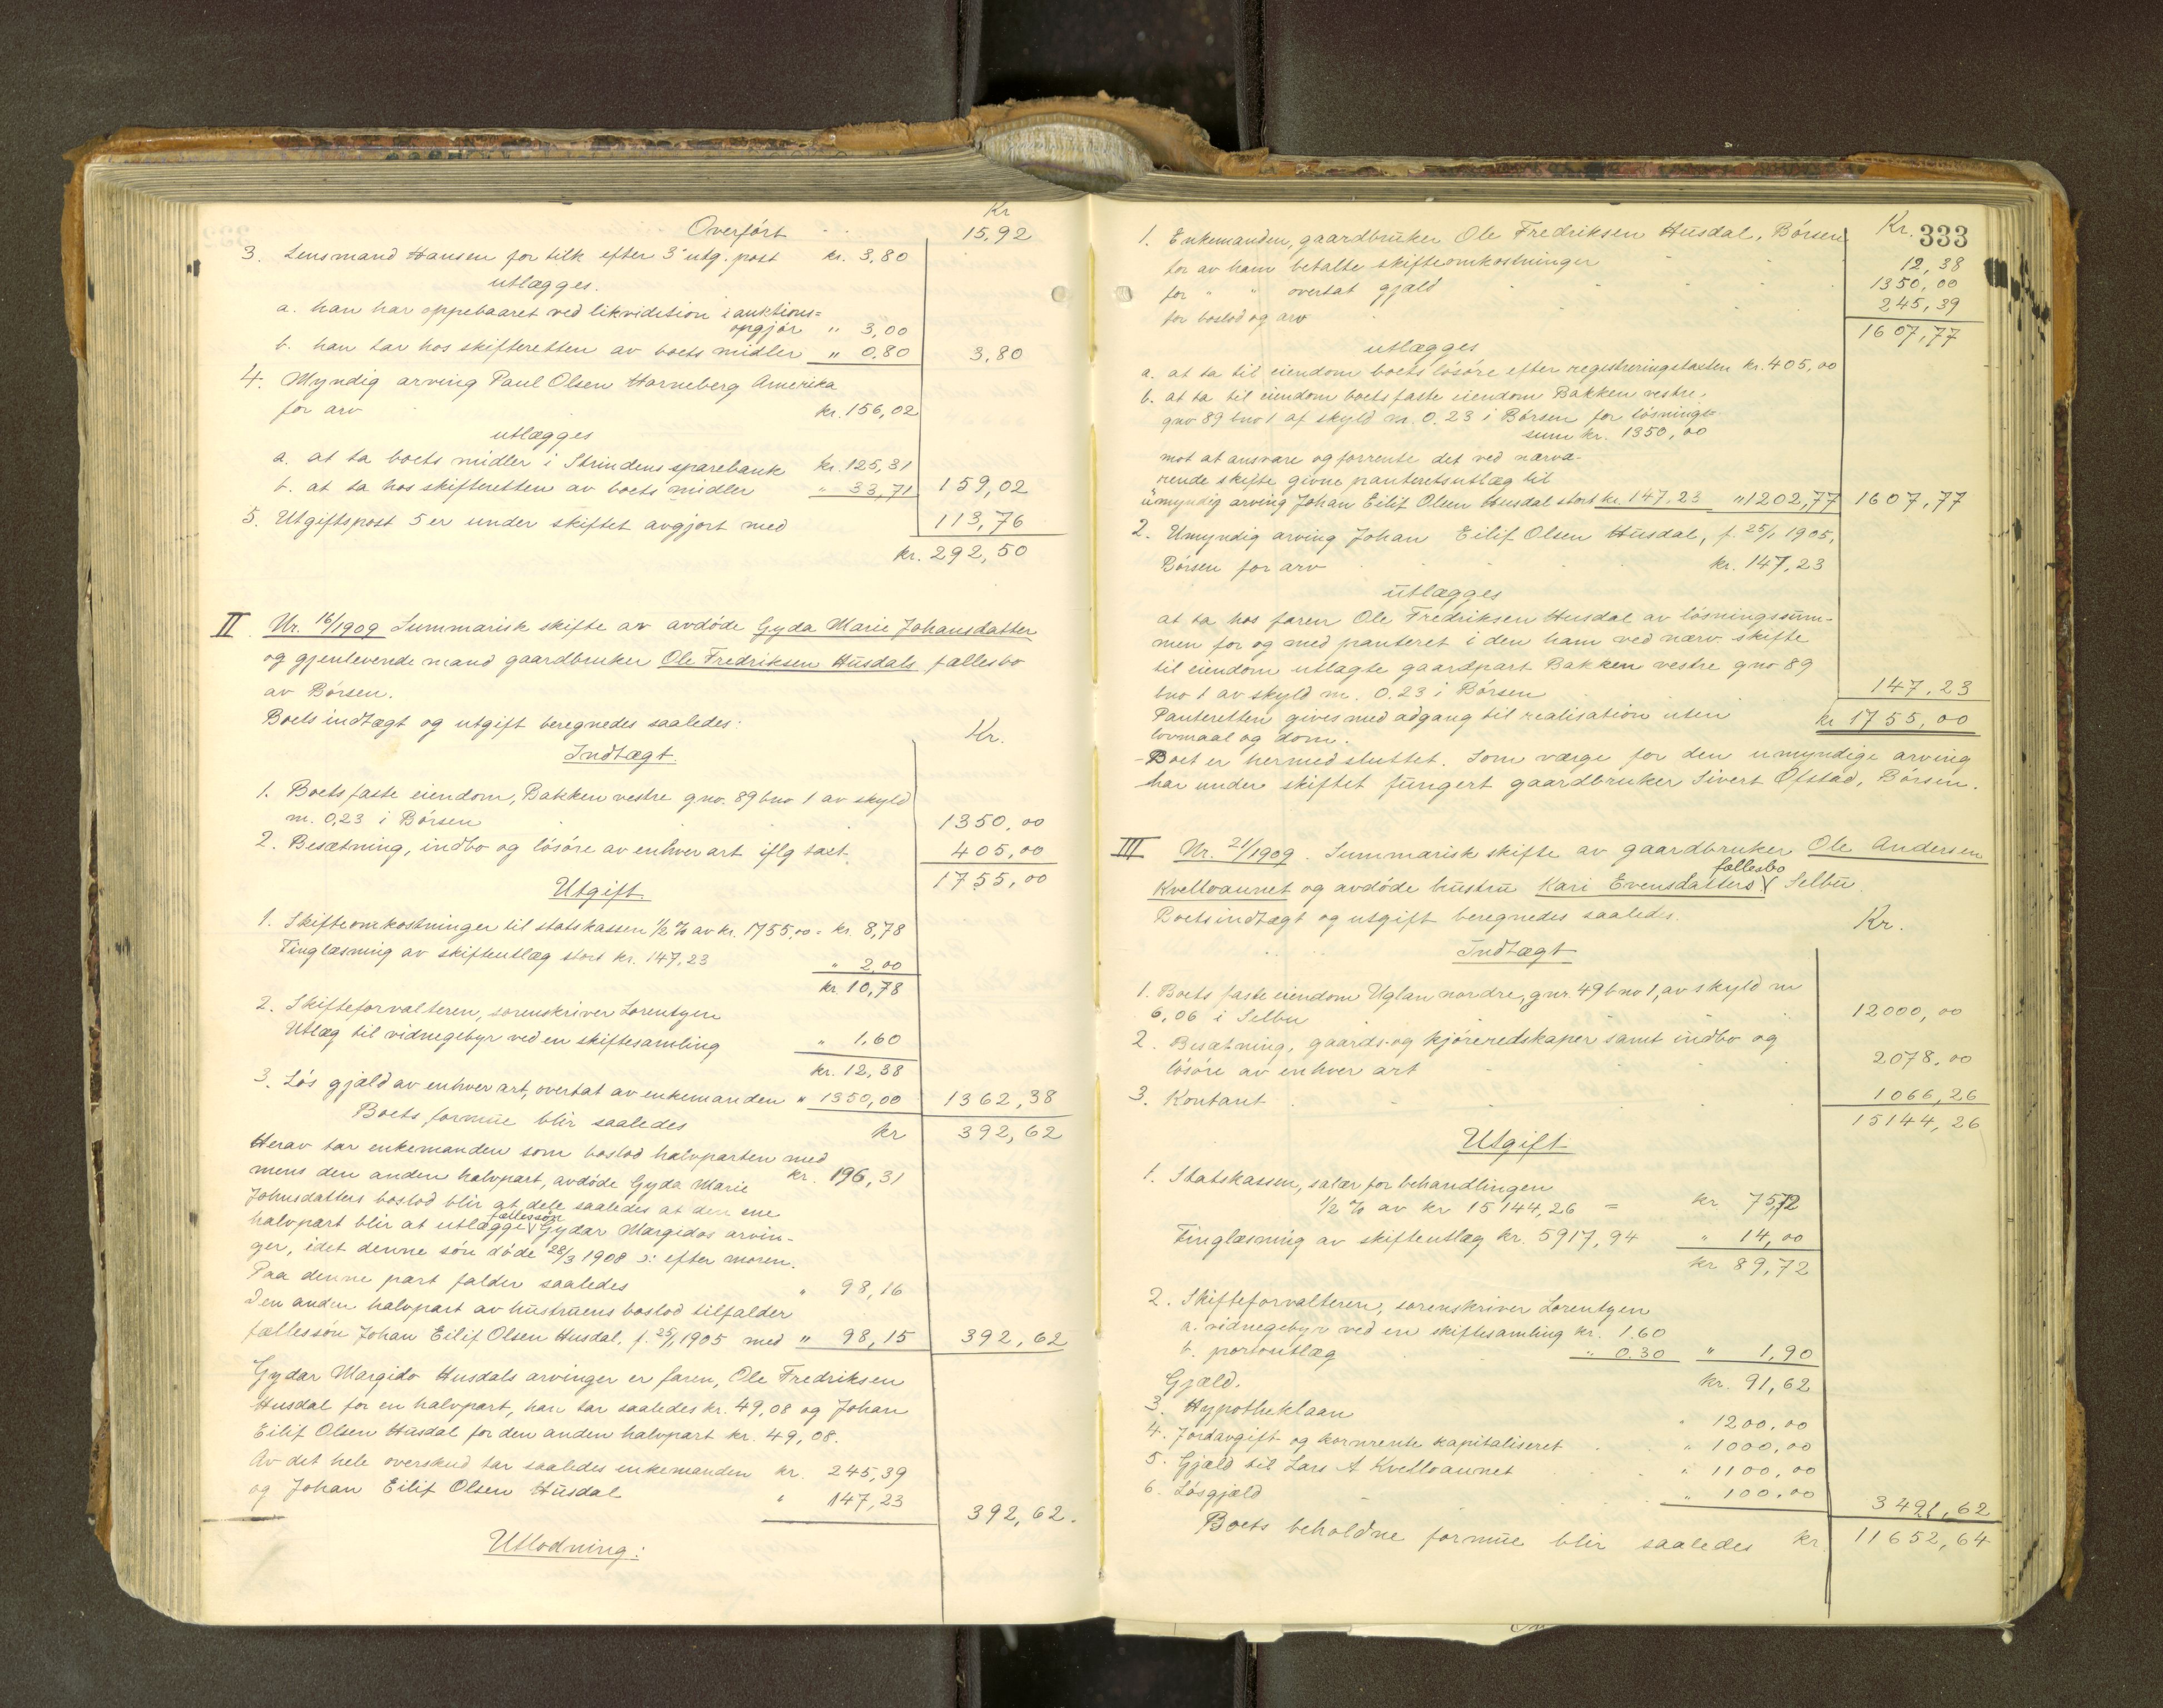 Kr
Overført 15,92
3. Lensmand Hansen for tilk efter 3' utg. post kr. 3,80
utlægges.
a. han har oppebaaret ved likvidition i auktions=
opgjør " 3,00
b. han tar hos skifteretten av boets midler " 0,80 3,80
4. Myndig arving Paul Olsen Horneberg Amerika
for arv kr. 156,02
utlægges
a. at ta boets midler i Strindens sparebank kr. 125,31
b. at ta hos skifteretten av boets midler " 33,71 159,02
5. Utgiftspost 5 er under skiftet avgjort med 113,76
kr. 292,50
II. Nr. 16/1909 Summarisk skifte av avdøde Gyda Marie Johansdatter
og gjenlevende mand gaardbruker Ole Fredriksen Husdals fællesbo
av Børsen.
Boets indtægt og utgift beregnedes saaledes:
Kr.
Indtægt.
1. Boets faste eiendom, Bakken vestre gno. 89 bno 1 av skyld
m. 0,23 i Børsen 1350,00
2. Besætning, indbo og løsøre av enhver art iflg takst. 405,00
1755,00
Utgift.
1. Skifteomkostninger til statskassen 1/2 % av kr. 1755,00 = kr. 8,78
Tinglæsning av skifteutlæg stort kr. 147,23 " 2,00
kr. 10,78
2. Skifteforvalteren, sorenskriver Lorentzen
Utlæg til vidnegebyr ved en skiftesamling " 1,60
kr. 12,38
3. Løs gjæld av enhver art, overtat av enkemanden " 1350,00 1362,38
Boets formue blir saaledes kr 392,62
Herav tar enkemanden som boslod halvparten med
kr. 196,31
mens den anden halvpart, avdøde Gyda Marie
Johnsdatters boslod blir at dele saaledes at den ene
halvpart blir at utlægge fællessøn Gydar Margidos arvin-
ger, idet denne søn døde 28/3 1908 ɔ: efter moren.
Paa denne part falder saaledes " 98,16
Den anden halvpart av hustruens boslod tilfalder
fællessøn Johan Eilif Olsen Husdal, f. 25/1 1905 med " 98,15 392,62
Gydar Margido Husdals arvinger er faren, Ole Fredriksen
Husdal for en halvpart, han tar saaledes kr. 49,08 og Johan
Eilif Olsen Husdal for den anden halvpart kr. 49,08.
Av det hele overskud tar saaledes enkemanden kr. 245,39
og Johan Eilif Olsen Husdal " 147,23 392,62.
Utlodning:
Kr. 333
1. Enkemanden, gaardbruker Ole Fredriksen Husdal, Børsen
for av ham betalte skifteomkostninger 12,38
for " " overtat gjæld 1350,00
for boslod og arv 245,39
1607,77
utlægges
a. at ta til eiendom boets løsøre efter registreringstaksten kr. 405,00
b. at ta til eiendom boets faste eiendom Bakken vestre,
gno 89 bno 1 af skyld m. 0.23 i Børsen for løsnings=
sum kr. 1350,00
mot at ansvare og forrente det ved nærvæ-
rende skifte givne panteretsutlæg til
umyndig arving Johan Eilif Olsen Husdal stort kr. 147,23 " 1202,77 1607,77
2. Umyndig arving Johan Eilif Olsen Husdal, f. 25/1 1905,
Børsen for arv kr. 147,23
utlægges
at ta hos faren Ole Fredriksen Husdal av løsningssum-
men for og med panteret i den ham ved nærv. skifte
til eiendom utlagte gaardpart Bakken vestre gno 89
bno 1 av skyld m. 0.23 i Børsen 147,23
Panteretten gives med adgang til realisation uten kr 1755,00
lovmaal og dom.
- Boet er hermed sluttet. Som værge for den umyndige arving
har under skiftet fungert gaardbruker Sivert Ofstad, Børsen.
III Nr. 21/1909. Summarisk skifte av gaardbruker Ole Andersen
Kvelloaunet og avdøde hustru Kari Evensdatters fællesbo Selbu.
Boets indtægt og utgift beregnedes saaledes.
Kr.
Indtægt
1. Boets faste eiendom Uglan nordre, gnr. 49 bno 1, av skyld m
6,06 i Selbu 12000,00
2. Besætning, gaards- og kjøreredskaper samt indbo og
løsøre av enhver art 2078,00
3. Kontant 1066,26
15144,26
Utgift
1. Statskassen, salær for behandlingen
1/2 % av kr 15144,26 = kr 75,72
Tinglæsning av skifteutlæg kr. 5917,94 " 14,00
kr 89,72
2. Skifteforvalteren, sorenskriver Lorentzen
a. vidnegebyr ved en skiftesamling kr. 1.60
b. portoutlæg " 0.30 " 1,90
Gjæld. kr. 91,62
3. Hypotheklaan " 1200,00
4. Jordavgift og kornrente kapitaliseret " 1000,00
5. Gjæld til Lars A Kvelloaunet " 1100,00
6. Løsgjæld " 100,00 3491,62
Boets beholdne formue blir saaledes kr. 11652,64